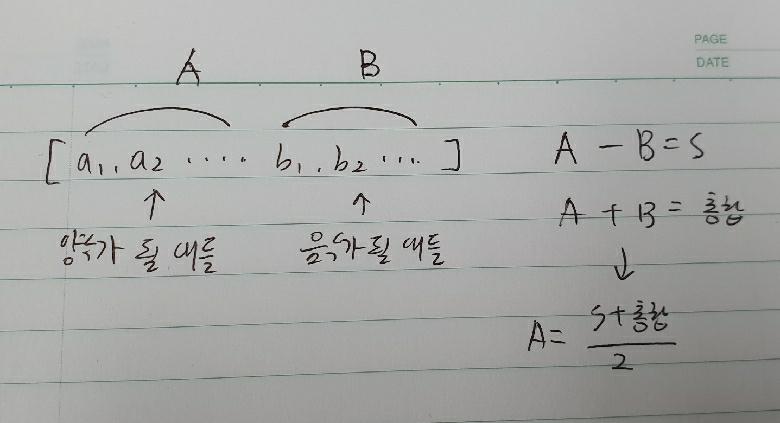 PAGE
DATE
A B
[a₁, a₂ ..... b₁, b₂ ....]
↑ ↑
양수가 될 애들 음수가 될 애들
A - B = S
A + B = 총합
↓
A = (S + 총합) / 2